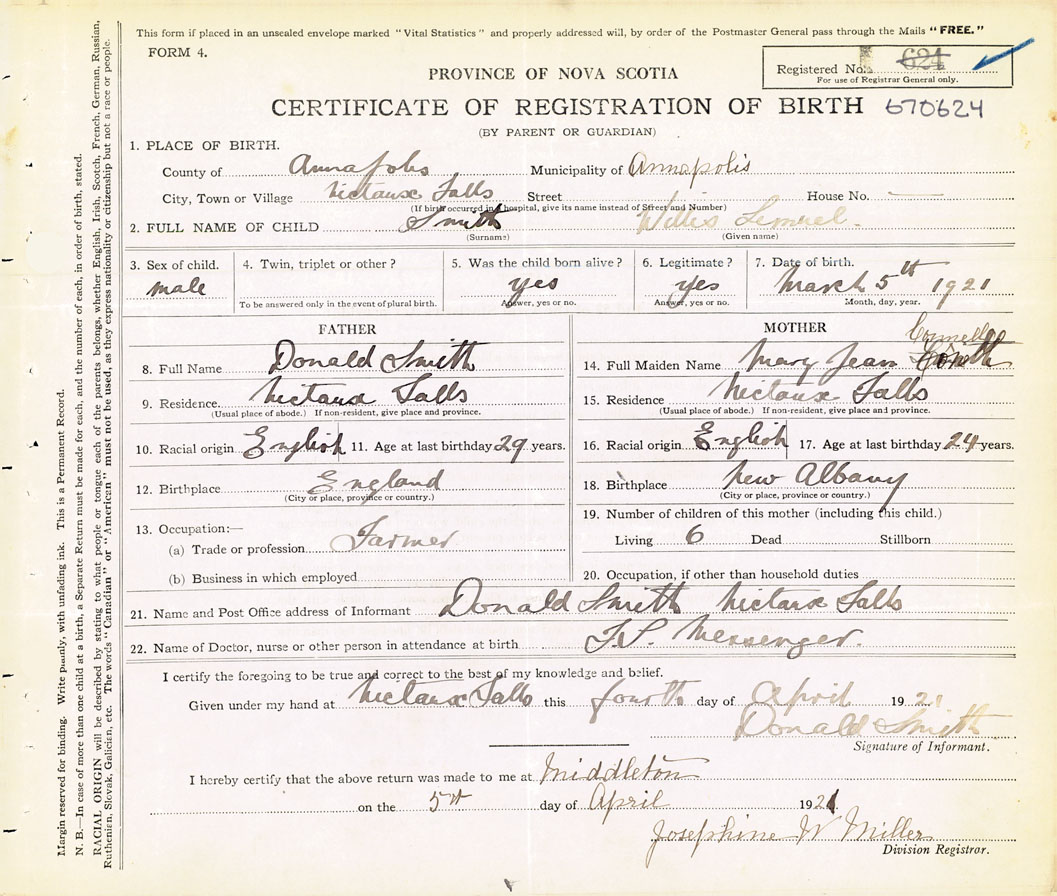 This form if placed in an unsealed envelope marked "Vital Statistics" and properly addressed will, by order of the Postmaster General pass through the Mails "FREE."
FORM 4.
Registered No. 621
For use of Registrar General only.
PROVINCE OF NOVA SCOTIA
CERTIFICATE OF REGISTRATION OF BIRTH 670624
(BY PARENT OR GUARDIAN)
1. PLACE OF BIRTH.
County of Annapolis Municipality of Annapolis
City, Town or Village Nictaux Falls Street House No.
(If birth occurred in hospital, give its name instead of Street and Number)
2. FULL NAME OF CHILD Smith Willis Lemuel
(Surname) (Given name)
3. Sex of child. male
4. Twin, triplet or other?
To be answered only in the event of plural birth.
5. Was the child born alive? yes
Answer, yes or no.
6. Legitimate? yes
Answer, yes or no.
7. Date of birth. March 5th 1921
Month, day, year.
FATHER
8. Full Name Donald Smith
9. Residence. Nictaux Falls
(Usual place of abode.) If non-resident, give place and province.
10. Racial origin English 11. Age at last birthday 29 years.
12. Birthplace England
(City or place, province or country.)
13. Occupation:—
(a) Trade or profession Farmer
(b) Business in which employed
MOTHER
14. Full Maiden Name Mary Jean
15. Residence Nictaux Falls
(Usual place of abode.) If non-resident, give place and province.
16. Racial origin English 17. Age at last birthday 24 years.
18. Birthplace New Albany
(City or place, province or country.)
19. Number of children of this mother (including this child.)
Living 6 Dead Stillborn
20. Occupation, if other than household duties
21. Name and Post Office address of Informant Donald Smith Nictaux Falls
22. Name of Doctor, nurse or other person in attendance at birth Messenger.
I certify the foregoing to be true and correct to the best of my knowledge and belief.
Given under my hand at Nictaux Falls this fourth day of April 1921
Donald Smith
Signature of Informant.
I hereby certify that the above return was made to me at Middleton
on the 5th day of April 1921
Josephine W Miller
Division Registrar.
Margin reserved for binding. Write plainly, with unfading ink. This is a Permanent Record.
N. B.—In case of more than one child at a birth, a Separate Return must be made for each, and the number of each, in order of birth, stated.
RACIAL ORIGIN will be described by stating to what people or tongue each of the parents belongs, whether English, Irish, Scotch, French, German, Russian,
Ruthenian, Slovak, Galician, etc. The words "Canadian" or "American" must not be used, as they express nationality or citizenship but not a race or people.